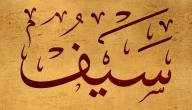 سَيْف